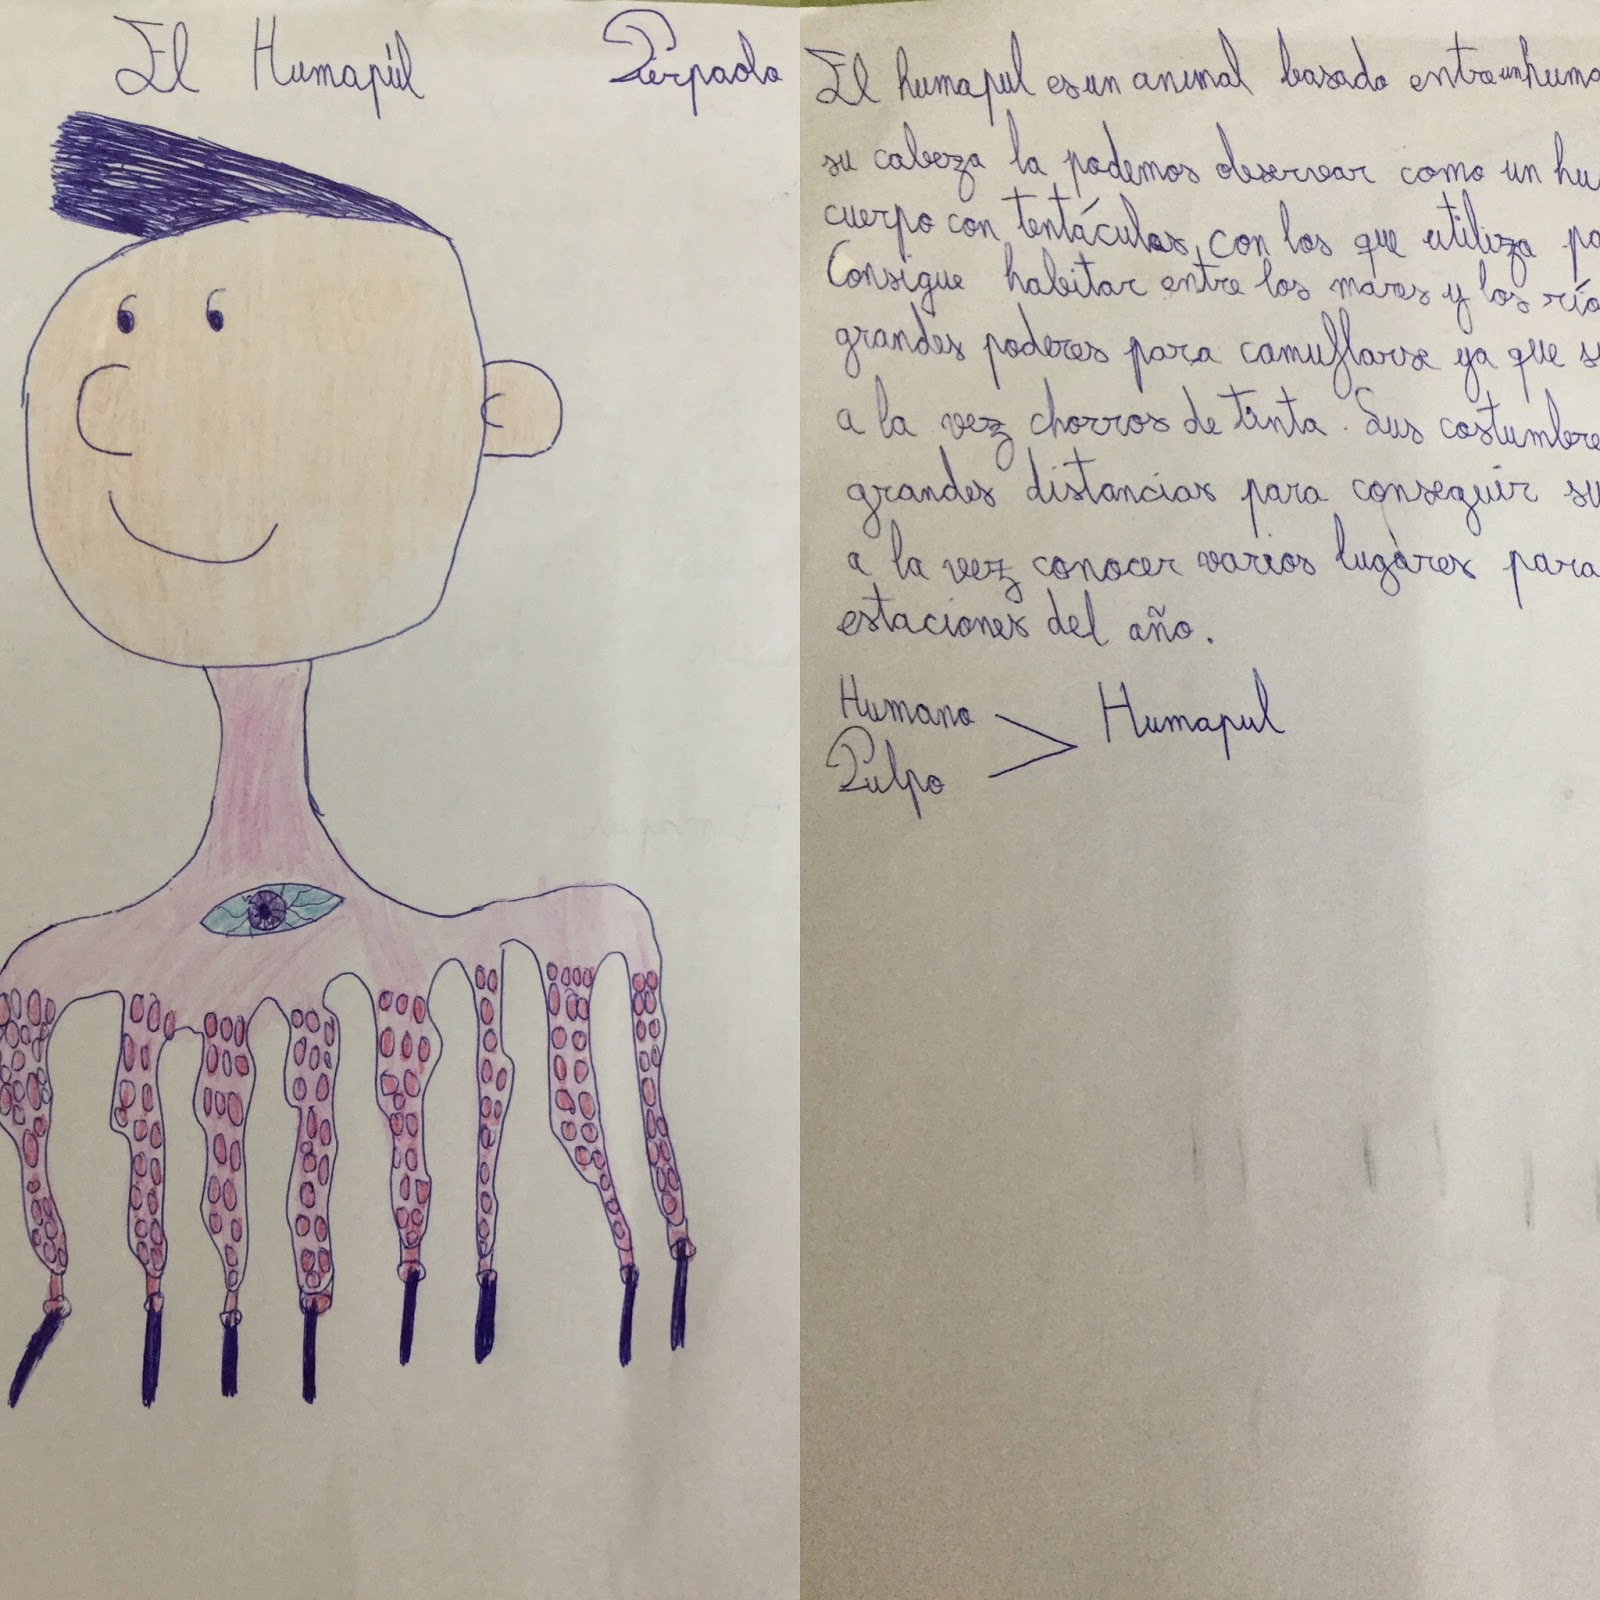 El Humapúl Pierpaolo
El humapul es un animal basado entre un huma
su cabeza la podemos observar como un hu
cuerpo con tentáculos, con los que utiliza pa
Consigue habitar entre los mares y los río
grandes poderes para camuflarse ya que s
a la vez chorros de tinta. Sus costumbre
grandes distancias para conseguir su
a la vez conocer varios lugares para
estaciones del año.
Humano
Pulpo
Humapul